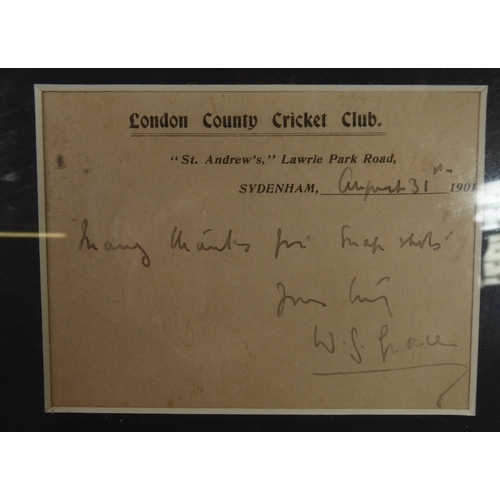 London County Cricket Club.
"St. Andrew's," Lawrie Park Road,
SYDENHAM, August 31st 1901
Many thanks for Snap shots
Yours truly
W. G. Grace